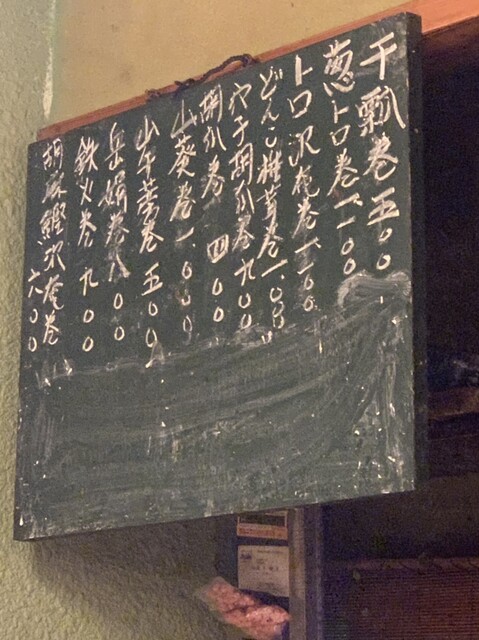 干瓢巻 五〇〇
葱トロ巻 一、一〇〇
トロ沢庵巻 一、一〇〇
どんこ椎茸巻 一、〇〇〇
穴子胡瓜巻 九〇〇
胡瓜巻 四〇〇
山葵巻 一、〇〇〇
山牛蒡巻 五〇〇
鉄火巻 九〇〇
胡麻鰹沢庵巻 六〇〇